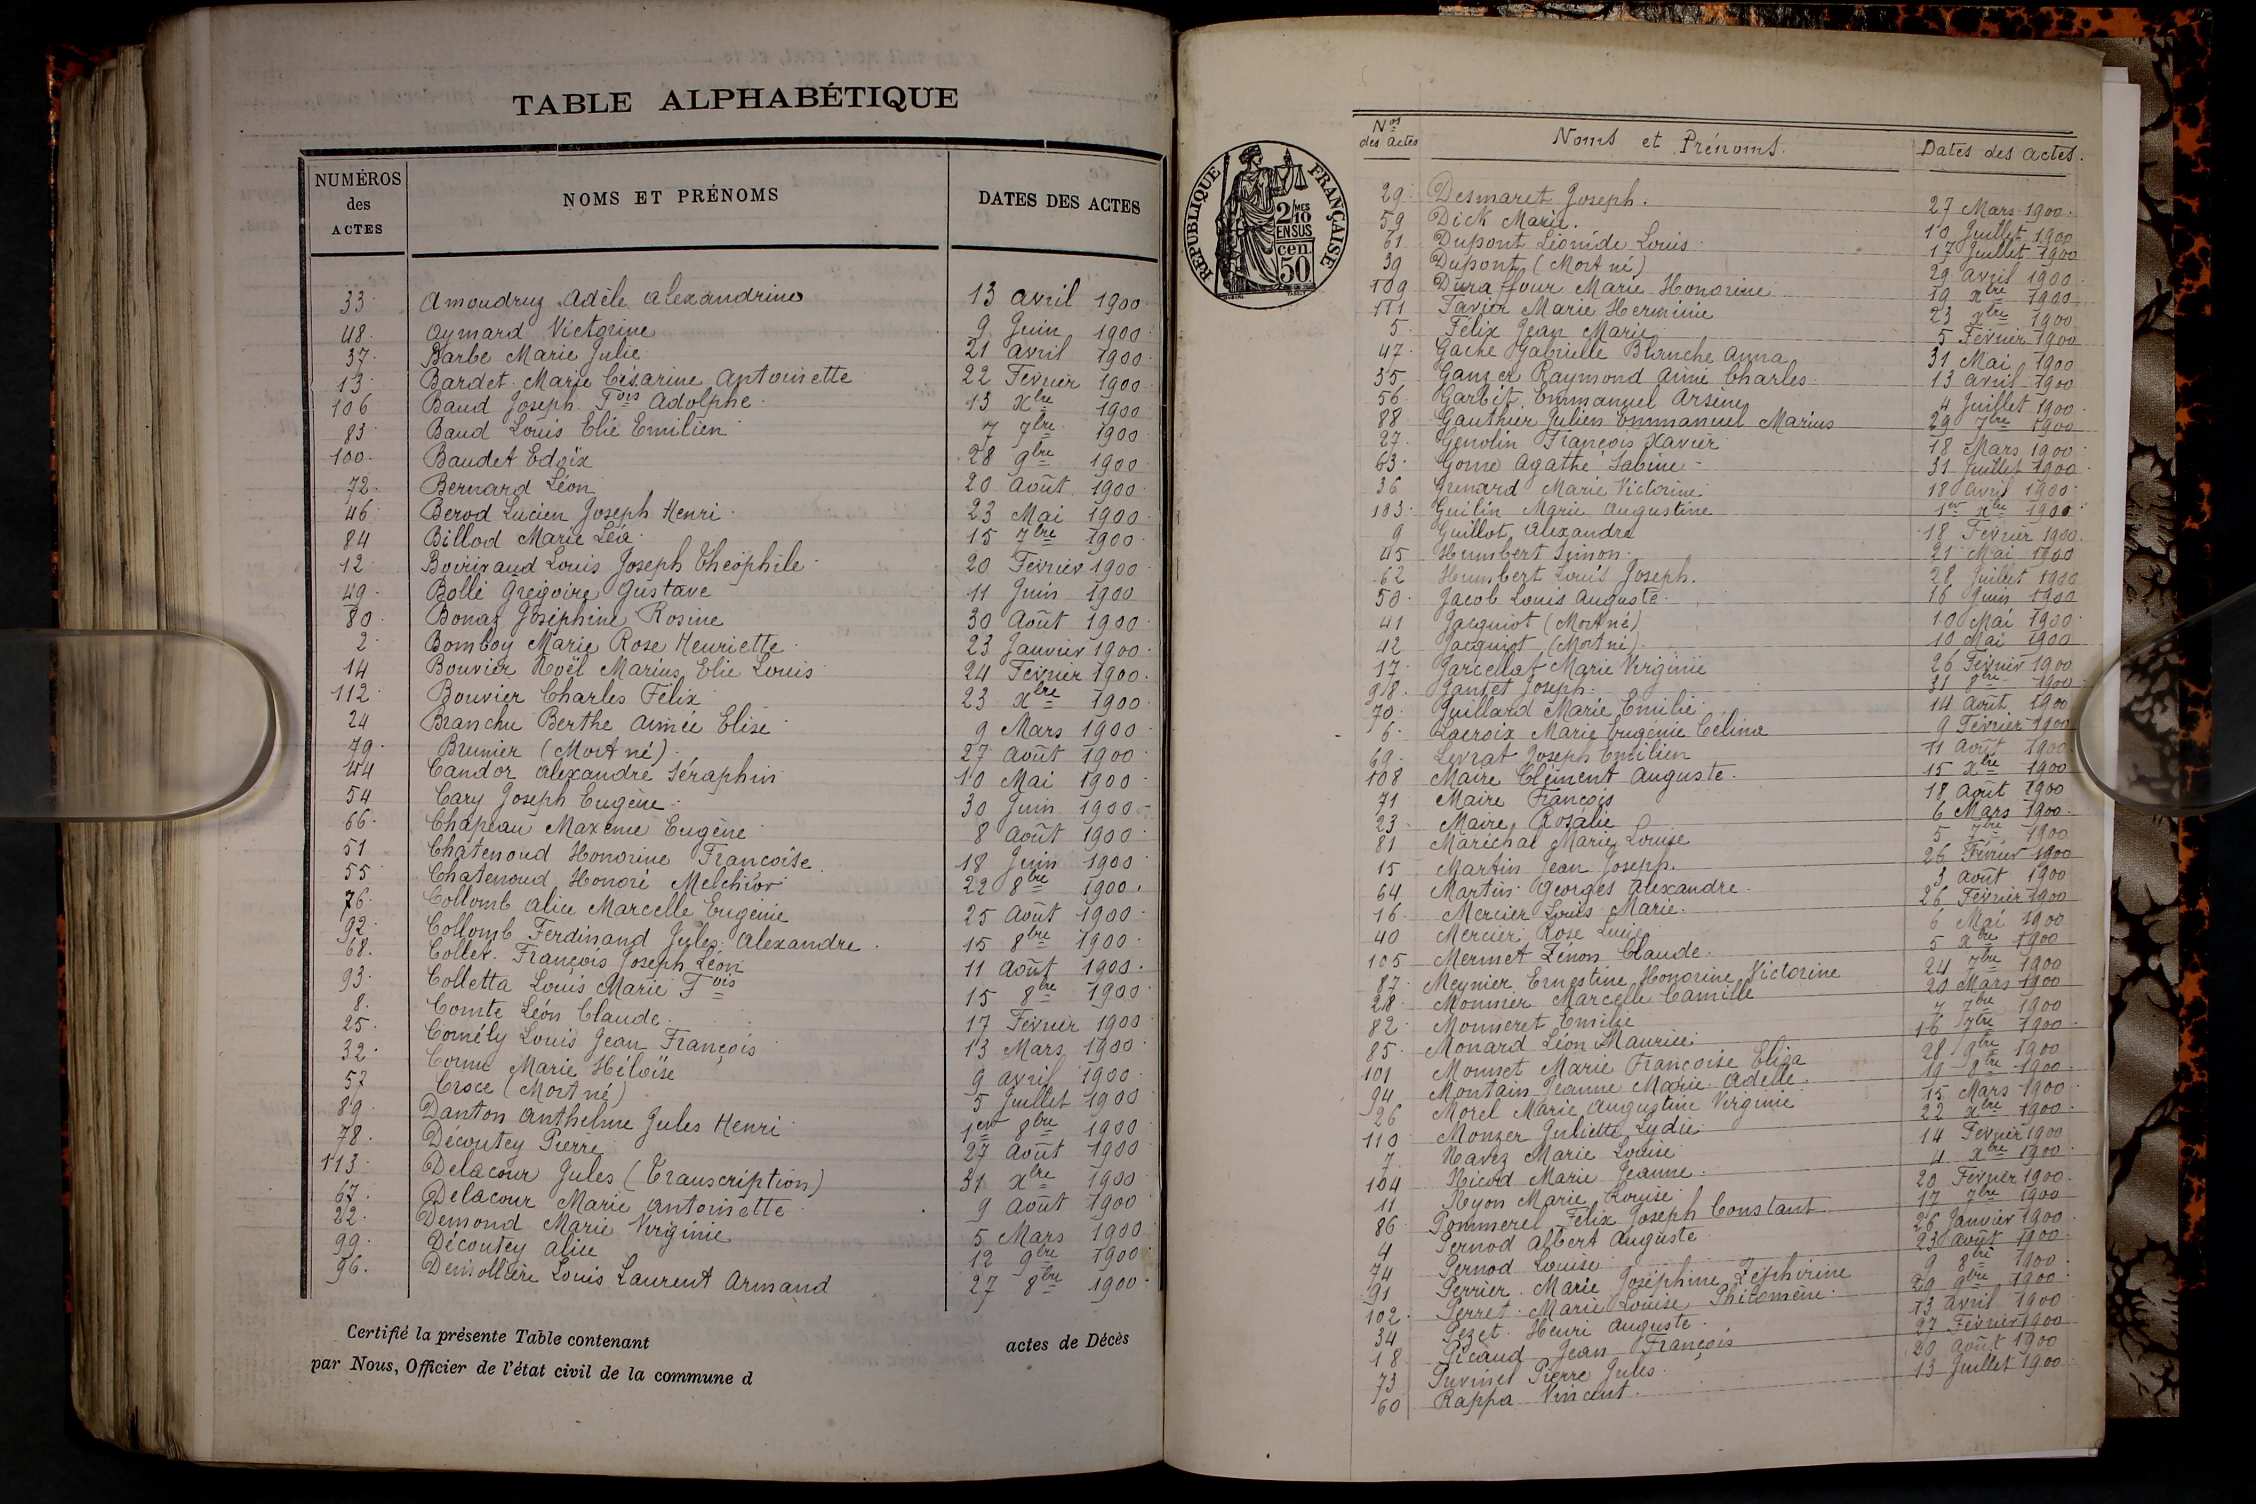 TABLE ALPHABÉTIQUE
NUMÉROS des ACTES NOMS ET PRÉNOMS DATES DES ACTES
33 Amoudruz Adèle Alexandrine 13 Avril 1900
48 Aymard Victorine 9 Juin 1900
37 Barbe Marie Julie 21 Avril 1900
13 Bardet Marie Césarine Antoinette 22 Février 1900
106 Baud Joseph Fois Adolphe 13 Xbre 1900
83 Baud Louis Elie Emilien 7 7bre 1900
100 Baudet Edoix 28 9bre 1900
72 Bernard Léon 20 Août 1900
46 Berod Lucien Joseph Henri 23 Mai 1900
84 Billod Marie Léa 15 7bre 1900
12 Boirivaud Louis Joseph Théophile 20 Février 1900
49 Bollé Grégoire Gustave 11 Juin 1900
80 Bonaz Joséphine Rosine 30 Août 1900
2 Bomboy Marie Rose Henriette 23 Janvier 1900
14 Bouvier Noël Marius Elie Louis 24 Février 1900
112 Bouvier Charles Félix 23 Xbre 1900
24 Branchu Berthe Aimée Elise 9 Mars 1900
79 Brunier (Mort né) 27 Août 1900
44 Candor Alexandre Séraphin 10 Mai 1900
54 Cary Joseph Eugène 30 Juin 1900
66 Chapeau Maxime Eugène 8 Août 1900
51 Chatenoud Honorine Françoise 18 Juin 1900
55 Chatenoud Honoré Melchior 22 8bre 1900
76 Collomb Alice Marcelle Eugénie 25 Août 1900
92 Collomb Ferdinand Jules Alexandre 15 8bre 1900
68 Collet François Joseph Léon 11 Août 1900
93 Colletta Louis Marie Fois 15 8bre 1900
8 Comte Léon Claude 17 Février 1900
25 Comély Louis Jean François 13 Mars 1900
32 Cornu Marie Héloïse 9 Avril 1900
57 Croce (Mort né) 5 Juillet 1900
89 Danton Anthelme Jules Henri 1er 8bre 1900
78 Découtey Pierre 27 Août 1900
113 Delacour Jules (Transcription) 31 Xbre 1900
67 Delacour Marie Antoinette 9 Août 1900
22 Demond Marie Virginie 5 Mars 1900
99 Découtey Alice 12 9bre 1900
96 Demollière Louis Laurent Armand 27 8bre 1900
Certifié la présente Table contenant actes de Décès
par Nous, Officier de l'état civil de la commune d
RÉPUBLIQUE FRANÇAISE
2/10MES
EN SUS
50 cen
Nos des actes Noms et Prénoms Dates des actes.
29 Desmaret Joseph. 27 Mars 1900
59 Dick Marie. 10 Juillet 1900
61 Dupont Léonide Louis 17 Juillet 1900
39 Dupont (Mort né) 29 Avril 1900
109 Duraffour Marie Honorine 19 Xbre 1900
111 Favier Marie Herminie 23 Xbre 1900
5 Félix Jean Marie 5 Février 1900
47 Gache Gabrielle Blanche Anna 31 Mai 1900
35 Ganzer Raymond Aimé Charles 13 Avril 1900
56 Garbit Emmanuel Arsene 4 Juillet 1900
88 Gauthier Julien Emmanuel Marius 29 7bre 1900
27 Genolin François Xavier 18 Mars 1900
63 Gome Agathe Sabine 31 Juillet 1900
36 Grenard Marie Victorine 18 Avril 1900
103 Guilin Marie Augustine 1er Xbre 1900
9 Guillot Alexandre 18 Février 1900
45 Humbert Simon 21 Mai 1900
62 Humbert Louis Joseph. 28 Juillet 1900
50 Jacob Louis Auguste 16 Juin 1900
41 Jacquiot (Mort né) 10 Mai 1900
42 Jacquiot (Mort né) 10 Mai 1900
17 Jarcellat Marie Virginie 26 Février 1900
98 Janset Joseph 31 8bre 1900
70 Juillard Marie Emilie 14 Août 1900
6 Lacroix Marie Eugénie Céline 9 Février 1900
69 Levrat Joseph Emilien 11 Août 1900
108 Maire Clément Auguste 15 Xbre 1900
71 Maire François 18 Août 1900
23 Maire Rosalie 6 Mars 1900
81 Maréchal Marie Louise 5 7bre 1900
15 Martin Jean Joseph. 26 Février 1900
64 Martin Georges Alexandre 3 Août 1900
16 Mercier Louis Marie 26 Février 1900
40 Mercier Rose Lucie 6 Mai 1900
105 Mermet Zénon Claude 5 Xbre 1900
87 Meynier Ernestine Honorine Victorine 24 7bre 1900
28 Monnier Marcelle Camille 20 Mars 1900
82 Monneret Emilie 7 7bre 1900
85 Monard Léon Maurice 16 7bre 1900
101 Monnet Marie Françoise Eliza 28 9bre 1900
94 Montain Jeanne Marie Adelle 19 8bre 1900
26 Morel Marie Augustine Virginie 15 Mars 1900
110 Monzer Juliette Lydie 22 Xbre 1900
7 Navez Marie Louise 14 Février 1900
104 Nicod Marie Jeanne 4 Xbre 1900
11 Nyon Marie Louise 20 Février 1900
86 Pommerel Félix Joseph Constant 17 7bre 1900
4 Pernod Albert Auguste 26 Janvier 1900
74 Pernod Louise 23 Août 1900
91 Perrier Marie Joséphine Zéphirine 9 8bre 1900
102 Perret Marie Louise Philomène 29 9bre 1900
34 Pezet Henri Auguste 13 Avril 1900
18 Picaud Jean François 27 Février 1900
73 Puvinel Pierre Jules 20 Août 1900
60 Rappa Vincent 13 Juillet 1900